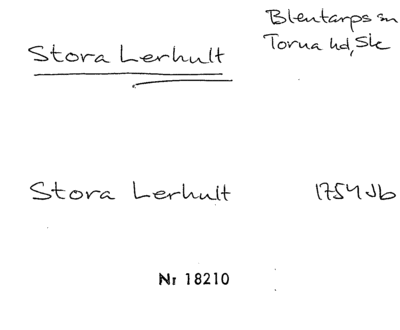 Blentarps sn
Stora Lerhult
Torna hd, Sk
Stora Lerhult 1754 Jb
Nr 18210